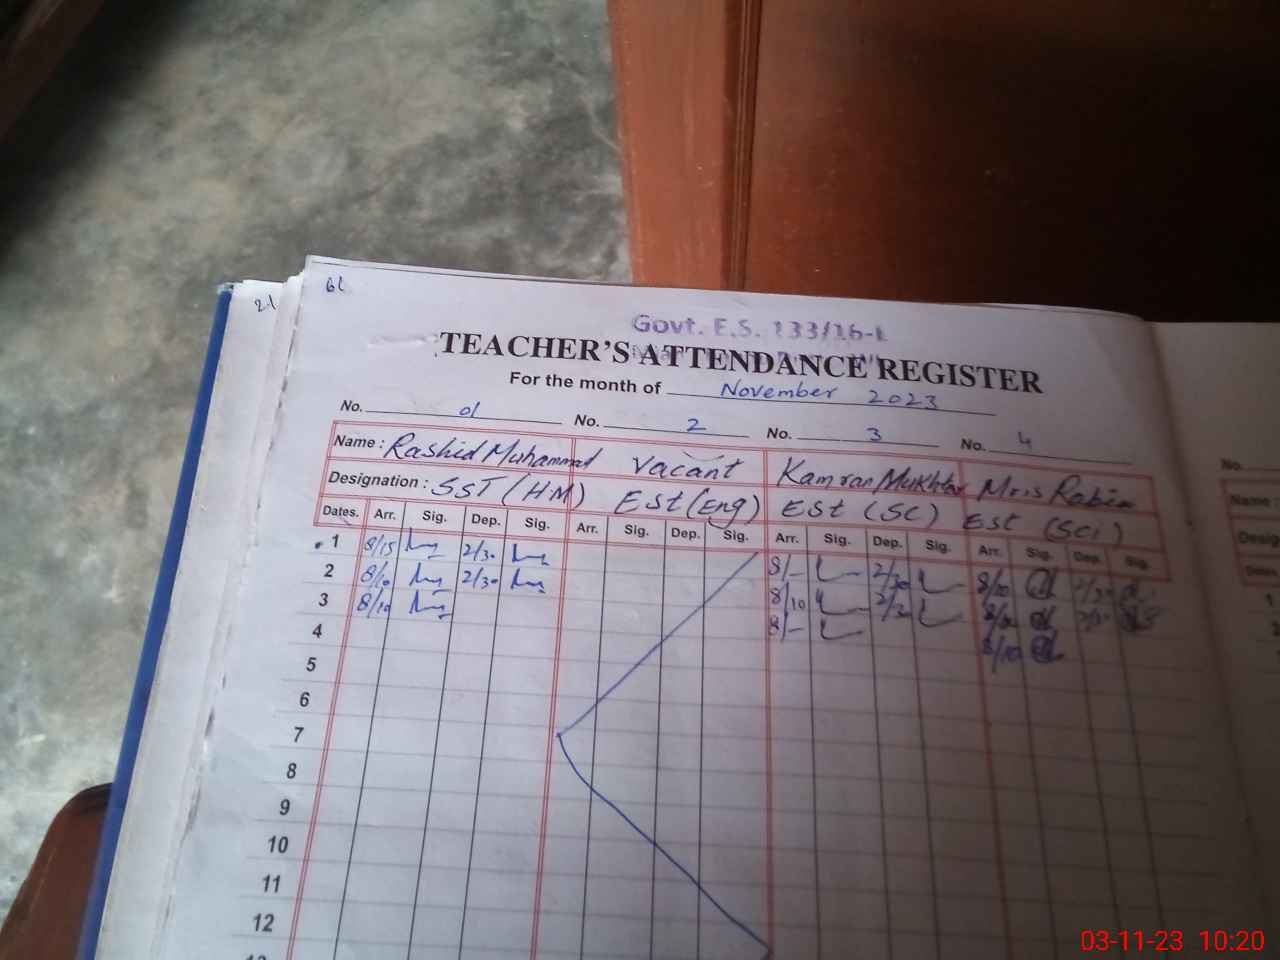 61
21
Govt. E.S. 133/16-L
TEACHER'S ATTENDANCE REGISTER
For the month of November 2023
No. 01 No. 2 No. 3 No. 4
Name : Rashid Muhammad Vacant Kamran Mukhtar Mris Rabia
Designation : SST (HM) ESt (Eng) ESt (SC) ESt (SCi)
Dates. Arr. Sig. Dep. Sig. Arr. Sig. Dep. Sig. Arr. Sig. Dep. Sig. Arr. Sig. Dep. Sig.
1 8/15 2/30 8/- 2/30 8/10 2/30
2 8/10 2/30 8/10 2/30 2/30
3 8/10 8/- 8/10
4
5
6
7
8
9
10
11
12
13
No.
Name :
Desig
Dates
1
03-11-23 10:20